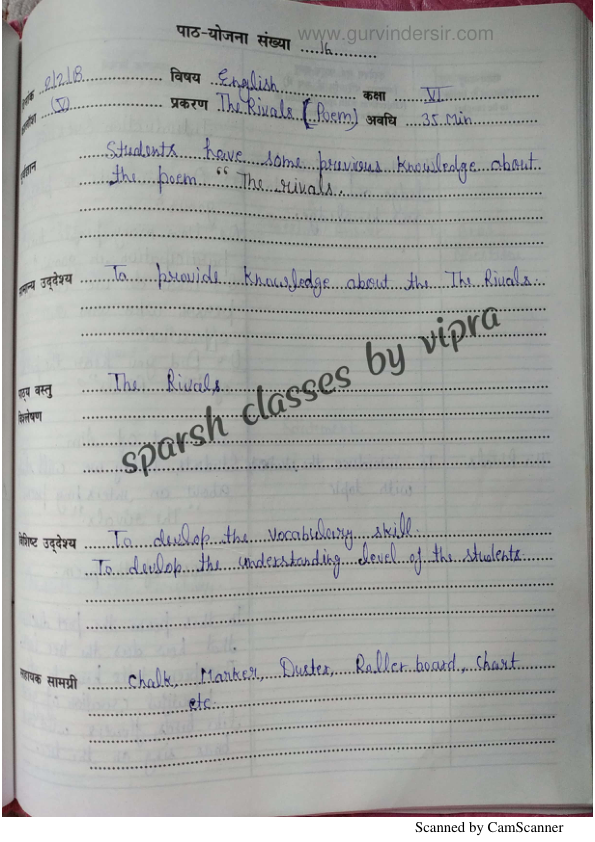 www.gurvindersir.com
पाठ-योजना संख्या 16
विषय English कक्षा VI
प्रकरण The Rivals (Poem) अवधि 35 Min
Students have some previous knowledge about
the poem "The rivals.
उद्देश्य To provide knowledge about the The Rivals.
वस्तु The Rivals
sparsh classes by vipra
उद्देश्य To develop the vocabulary skill.
To devlop the understanding level of the students
सामग्री Chalk, Marker, Duster, Roller board, Chart
etc.
Scanned by CamScanner